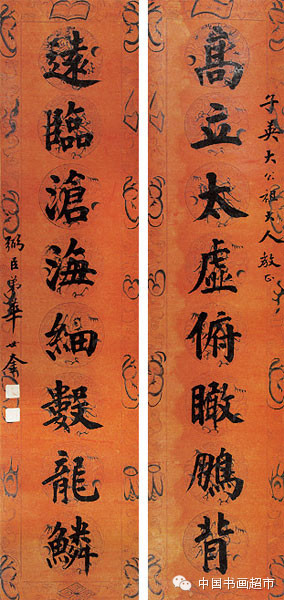 子英大公祖大人教正
高立太虛俯瞰鵬背
遠臨滄海細數龍鱗
弼臣弟華世奎
中国书画超市